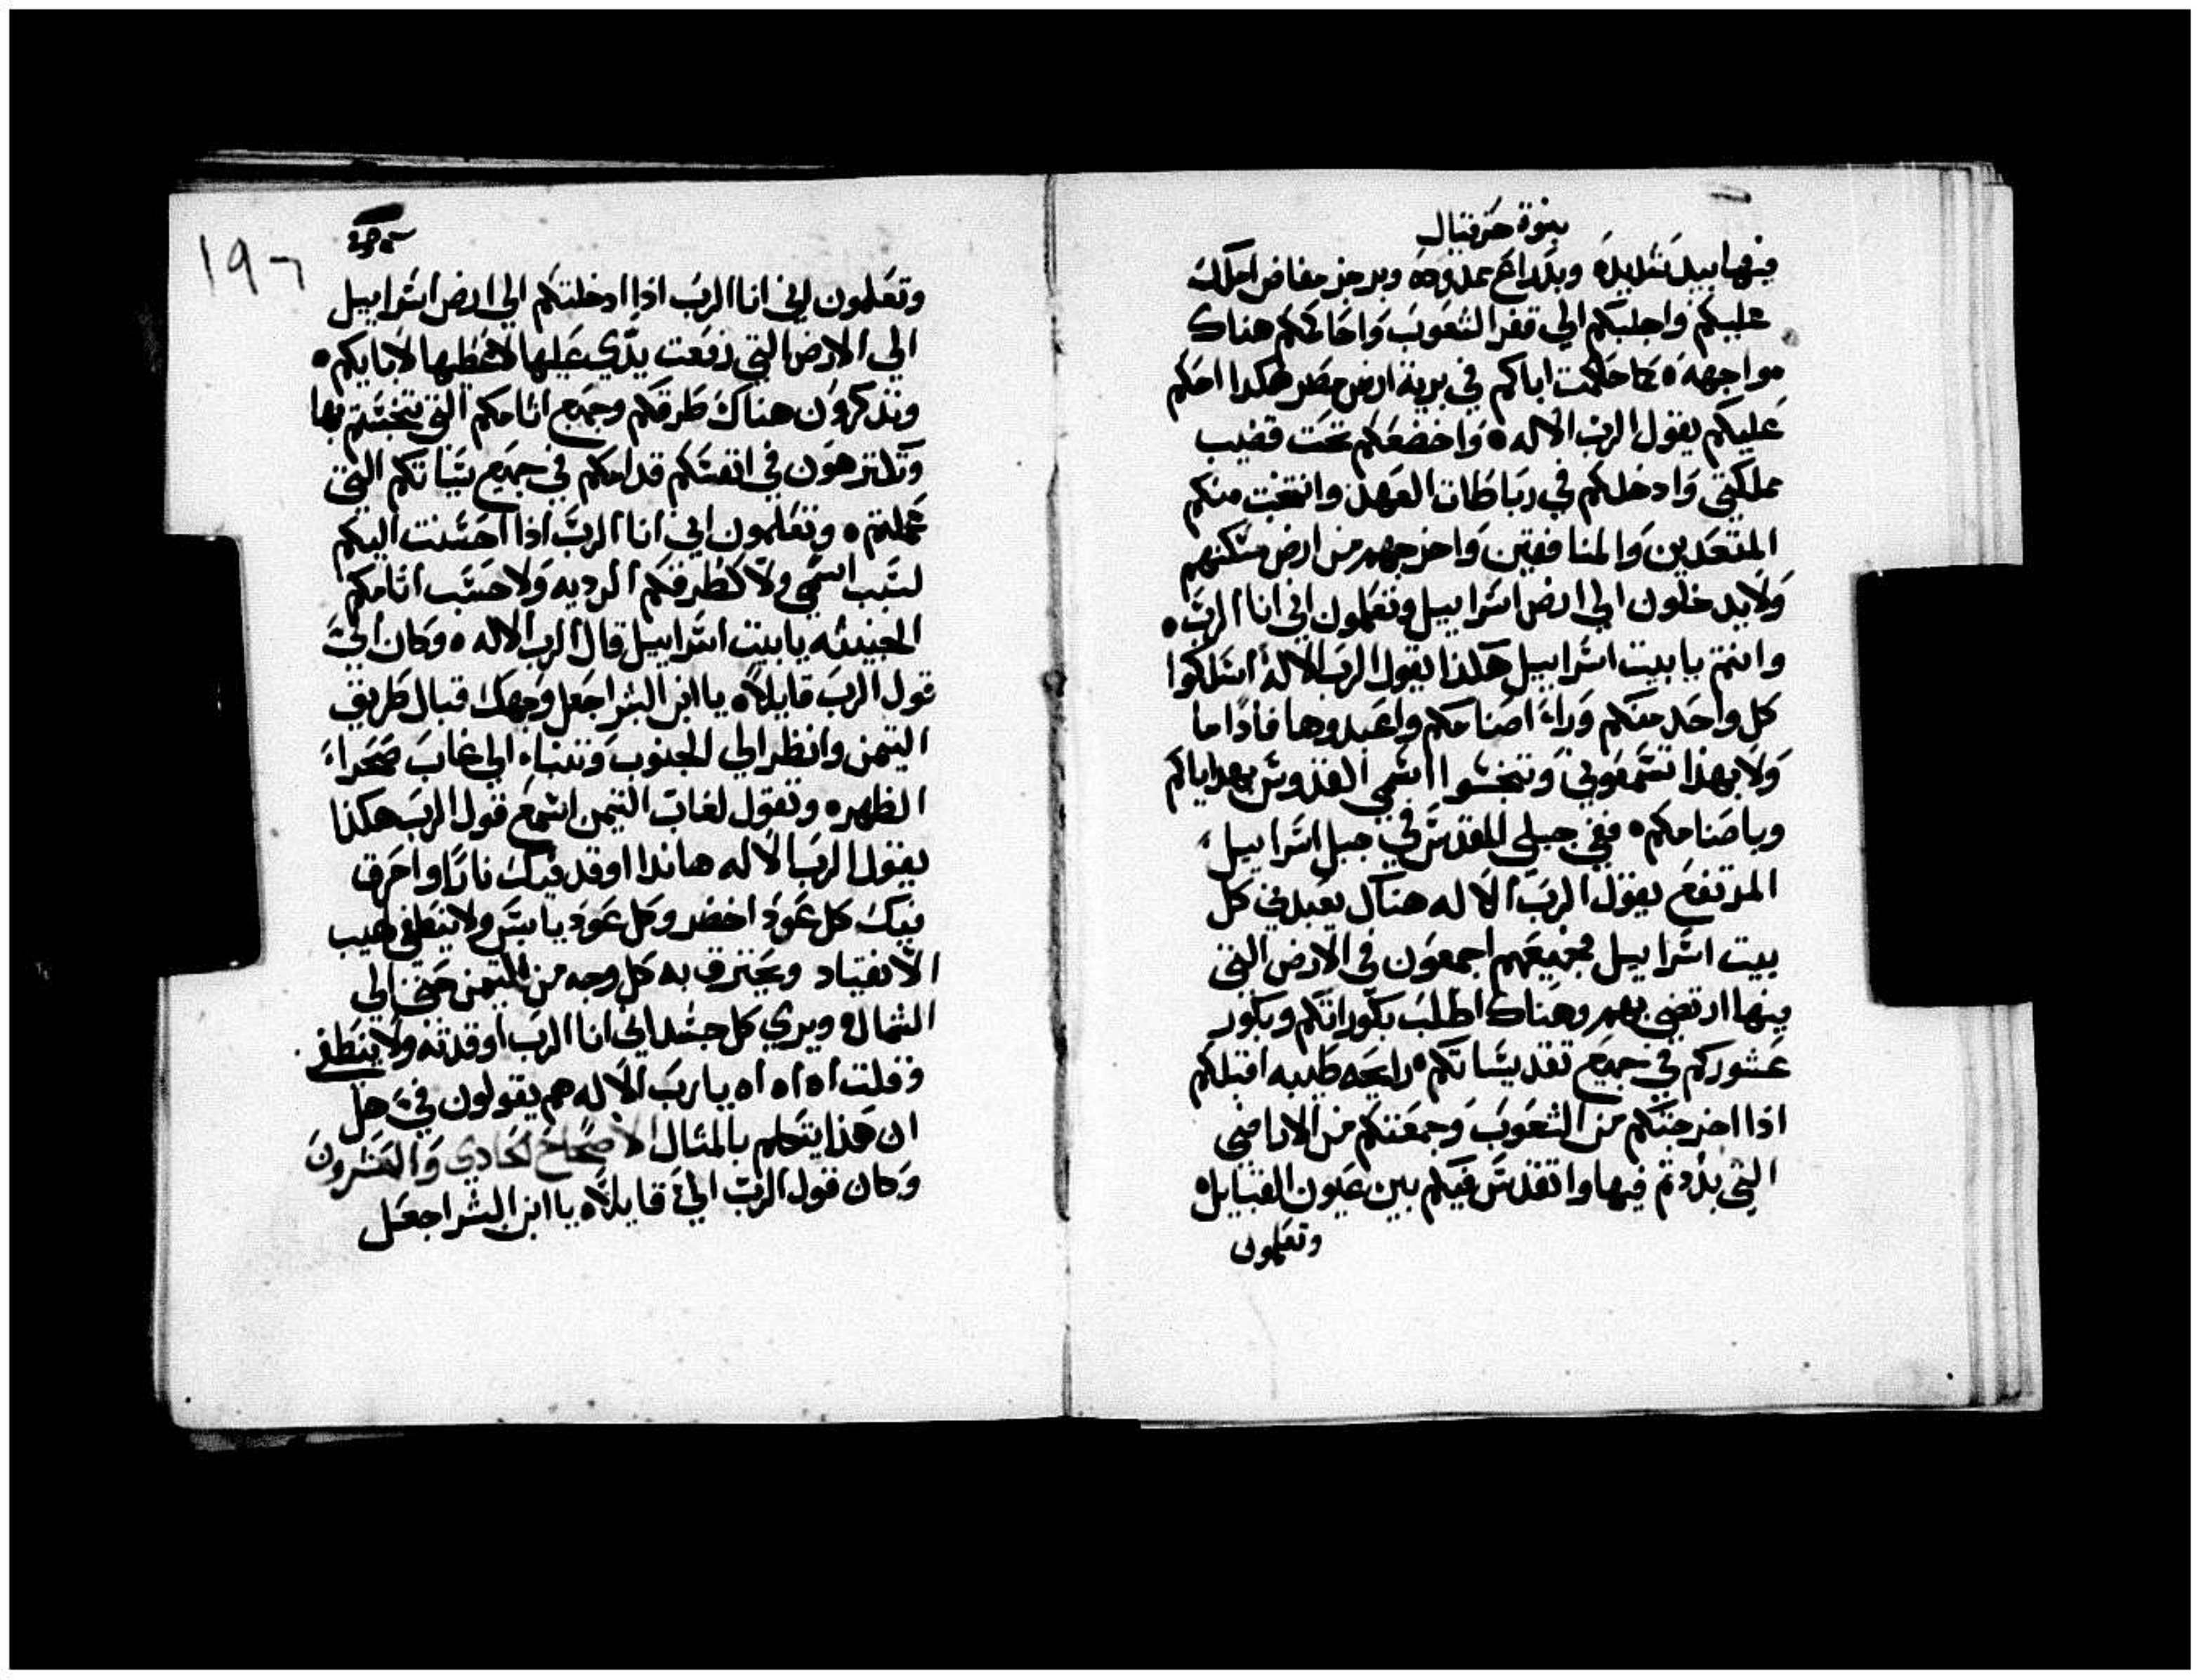 بنوة حزقيال
فيها بيد شديده وبدراع ممدوده وبرجز مفاض املك
عليكم واجلبكم الي قفر الشعوب واحاكمكم هناك
مواجهه ٥ كما حاكمت اباكم في برية ارض مصر هكدا احكم
عليكم يقول الرب الاله ٥ واخضعكم تحت قضيب
مملكتي وادخلكم في رباطات العهد وانتخب منكم
المتعديين والمنافقين واخرجهم من ارض مسكنهم
ولا يدخلون الي ارض اسراييل وتعلمون اني انا الرب ٥
وانتم يا بيت اسراييل هكذا يقول الرب الاله اسلكوا
كل واحد منكم وراء اصنامكم واعبدوها فاذا ما
ولا بهذا تسمعوني وتنجسوا اسمي القدوس بهداياكم
وباصنامكم ٥ ففي جبلي المقدس في جبل اسراييل
المرتفع يقول الرب الاله هناك يعبدني كل
بيت اسراييل بجميعهم اجمعون في الارض التي
فيها ارتضي بهم وهناك اطلب بكوراتكم وبكور
عشوركم في جميع تقديساتكم ٥ رايحه طيبه اقبلكم
اذا اخرجتكم من الشعوب وجمعتكم من الاراضي
التي بددتم فيها واتقدس فيكم بين عيون القبايل ٥
وتعلمون
١٩٦
وتعلمون اني انا الرب اذا ادخلتكم الي ارض اسراييل
الي الارض التي رفعت يدي عليها لاعطيها لابايكم ٥
وتدكرون هناك طرقكم وجميع اثامكم التي تنجستم بها
وتكترهون في انفسكم قدامكم في جميع سياتكم التي
عملتم ٥ وتعلمون اني انا الرب اذا احسنت اليكم
لسبب اسمي ولا كطرقكم الرديه ولا حسب اثامكم
الخبيثه يا بيت اسراييل قال الرب الاله ٥ وكان اليّ
قول الرب قايلاً ٥ يا ابن البشر اجعل وجهك قبال طريق
التيمن وانظر الي الجنوب وتنباء الي غاب صحراء
الظهره وتقول لغاب التيمن اسمع قول الرب هكذا
يقول الرب الاله هاندا اوقد فيك نارًا واحرق
فيك كل عود اخضر وكل عود يابس ولا ينطفي لهيب
الانقياد ويحترق به كل وجه من التيمن حتي الي
الشمال ٥ ويري كل جسد اني انا الرب اوقدته ولا ينطفي
وقلت اه اه اه يا رب الاله هم يقولون فيّ هل
ان هذا يتكلم بالمثال الاصحاح الحادي والعشرون
وكان قول الرب اليّ قايلاً ٥ يا ابن البشر اجعل